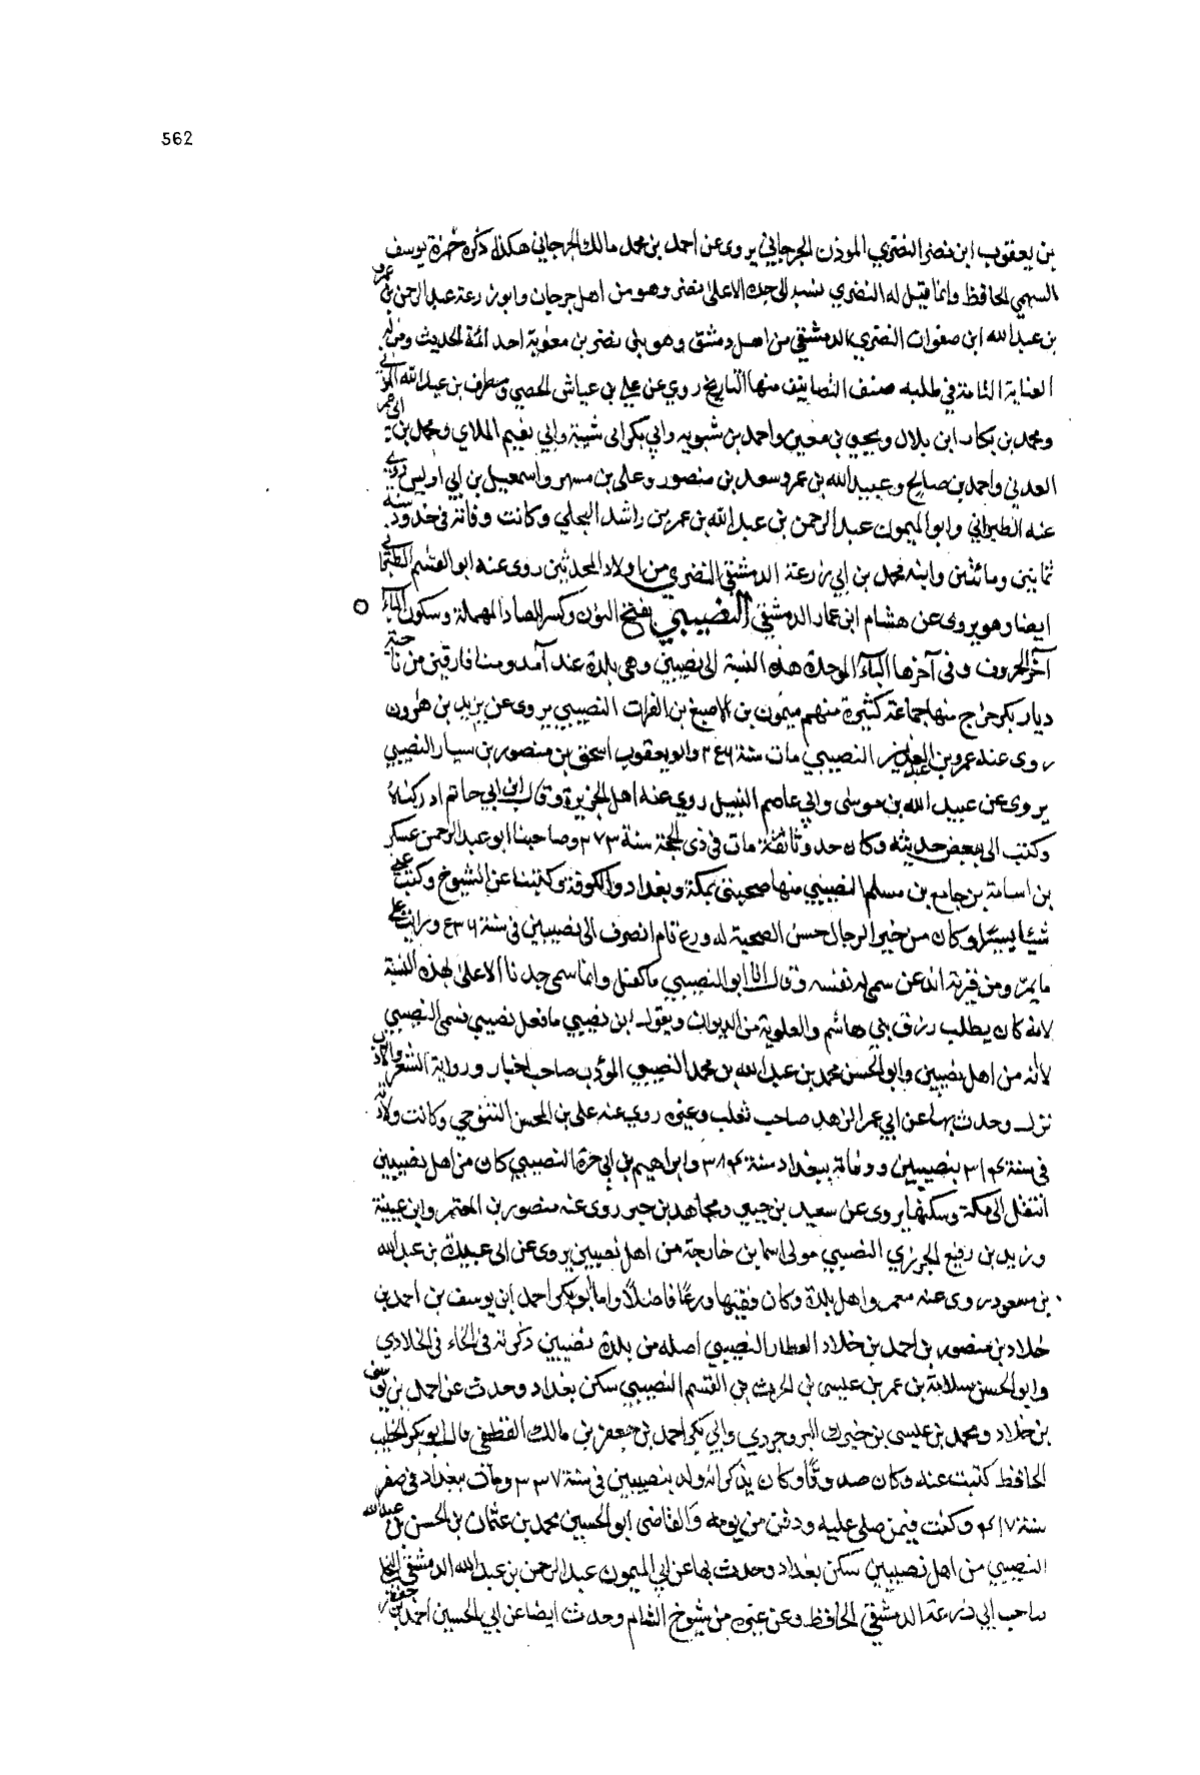 562
بن يعقوب ابن نصر النصري الموذن الجرجاني يروى عن احمد بن محمد مالك الجرجاني هكذا ذكره حمزة يوسف
السهمي الحافظ وانما قيل له النصري نسبة الى جده الاعلى نصر وهو من اهل جرجان وابو زرعة عبد الرحمن بن عمرو
بن عبد الله ابن صفوان النصري الدمشقي من اهل دمشق وهو بني نصر بن معوية احد ائمة الحديث ومن له
العناية التامة في طلبه صنف التصانيف منها التاريخ روي عن علي بن عياش الحمصي ومطرف بن عبد الله
ومحمد بن بكار ابن بلال ويحيى بن معين واحمد بن شبويه وابي بكر ابى شيبة وابي نعيم الملاي ومحمد بن
العدني واحمد بن صالح وعبيد الله بن عمر وسعد بن منصور وعلى بن مسهر واسمعيل بن ابي اويس روى
عنه الطبراني وابو الميمون عبد الرحمن بن عبد الله بن عمر بن راشد البجلي وكانت وفاته في حدود سنة
ثمانين ومائتين وابنه محمد بن ابي زرعة الدمشقي النصري من اولاد المحدثين روى عنه ابو القسم
ايضا وهو يروى عن هشام ابن عمار الدمشقي النصيبي بفتح النون وكسر الصاد المهملة وسكون الياء
آخر الحروف وفى آخرها الباء الموحدة هذه النسبة الى نصيبين وهى بلدة عند آمد وميافارقين من ناحية
ديار بكر خرج منها جماعة كثيرة منهم ميمون بن الاصبغ بن الفرات النصيبي يروى عن يزيد بن هرون
روى عنه عمرو بن النصيبي مات سنة ٢٤٦ وابو يعقوب اسحق بن منصور بن سيار النصيبي
يروى عن عبيد الله بن موسى وابي عاصم النبيل روي عنه اهل الجزيرة وقال ابن ابي حاتم ادركناه
وكتب الى ببعض حديثه وكان صدوقا ثقة مات في ذى الحجة سنة ٢٧٣ وصاحبنا ابو عبد الرحمن عسكر
بن اسامة بن جامع بن مسلم النصيبي منها صحبني بمكة وبغداد والكوفة وكتبنا عن الشيوخ وكتبت عنه
شيئا يسيرا وكان من خير الرجال حسن الصحبة له ورع تام انصرف الى نصيبين في سنة
ومن قريته انه عن سمى له نفسه وقال انا ابو النصيبي وانما سمى جدنا الاعلى بهذه النسبة
لانه كان يطلب رزق بني هاشم والعلوية من الديوان ويقول ابن نصيبي ما فعل نصيبي فسمى النصيبي
لانه من اهل نصيبين وابو الحسن محمد بن عبد الله بن محمد النصيبي المؤدب صاحب اخبار ورواية الشعر
نزل وحدث بها عن ابي عمر الزاهد صاحب ثعلب وغيره روي عنه على بن المحسن التنوخي وكانت ولادته
في سنة ٣١٤ بنصيبين ووفاته ببغداد سنة ٣٨٤ وابراهيم بن ابي حرة النصيبي كان من اهل نصيبين
انتقل الى مكة وسكنها يروى عن سعيد بن جبير ومجاهد بن جبر روى عنه منصور بن المعتمر وابن عيينة
وزيد بن رفيع الجزري النصيبي مولى اسما بن خارجة من اهل نصيبين يروى عن ابى عبيدة بن عبد الله
بن مسعود روى عنه معمر واهل بلدة وكان فقيها ورعا فاضلا واما ابو بكر احمد ابن يوسف بن احمد بن
خلاد بن منصور بن احمد بن خلاد العطار النصيبي اصله من بلدة نصيبين ذكرته فى الخاء فى الخلادي
وابو الحسن سلامة بن عمر بن عيسى بن الحرث بن القسم النصيبي سكن بغداد وحدث عن احمد بن يوسف
بن خلاد ومحمد بن عيسى بن البروجردي وابي بكر احمد بن جعفر بن مالك القطيعي قال ابو بكر الخطيب
الحافظ كتبت عنه وكان صدوقا وكان يذكر انه ولد بنصيبين في سنة ٣٣٧ ومات ببغداد في صفر
سنة ٤١٧ وكنت فيمن صلى عليه ودفن من يومه والقاضى ابو الحسين محمد بن عثمان بن الحسن بن عبد الله
النصيبي من اهل نصيبين سكن بغداد وحدث بها عن ابي الميمون عبد الرحمن بن عبد الله الدمشقي البجلى
صاحب ابي زرعة الدمشقي الحافظ وعن غيره من شيوخ الشام وحدث ايضا عن ابي الحسين احمد بن جعفر